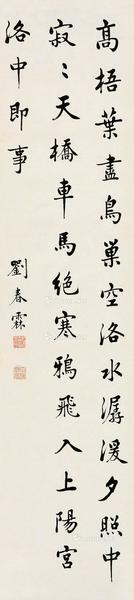 高梧葉盡鳥巢空洛水潺湲夕照中
寂〻天橋車馬絕寒鴉飛入上陽宮
洛中即事
劉春霖